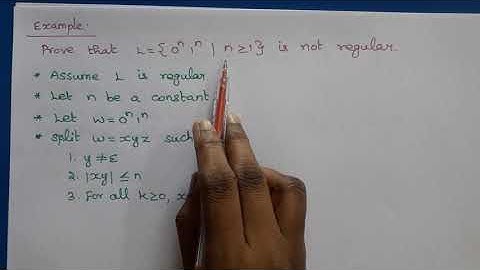 Example:
Prove that L = { 0ⁿ 1ⁿ | n ≥ 1 } is not regular.
* Assume L is regular
* Let n be a constant
* Let w = 0ⁿ1ⁿ
* split w = xyz such
1. y ≠ ε
2. |xy| ≤ n
3. For all k ≥ 0, x